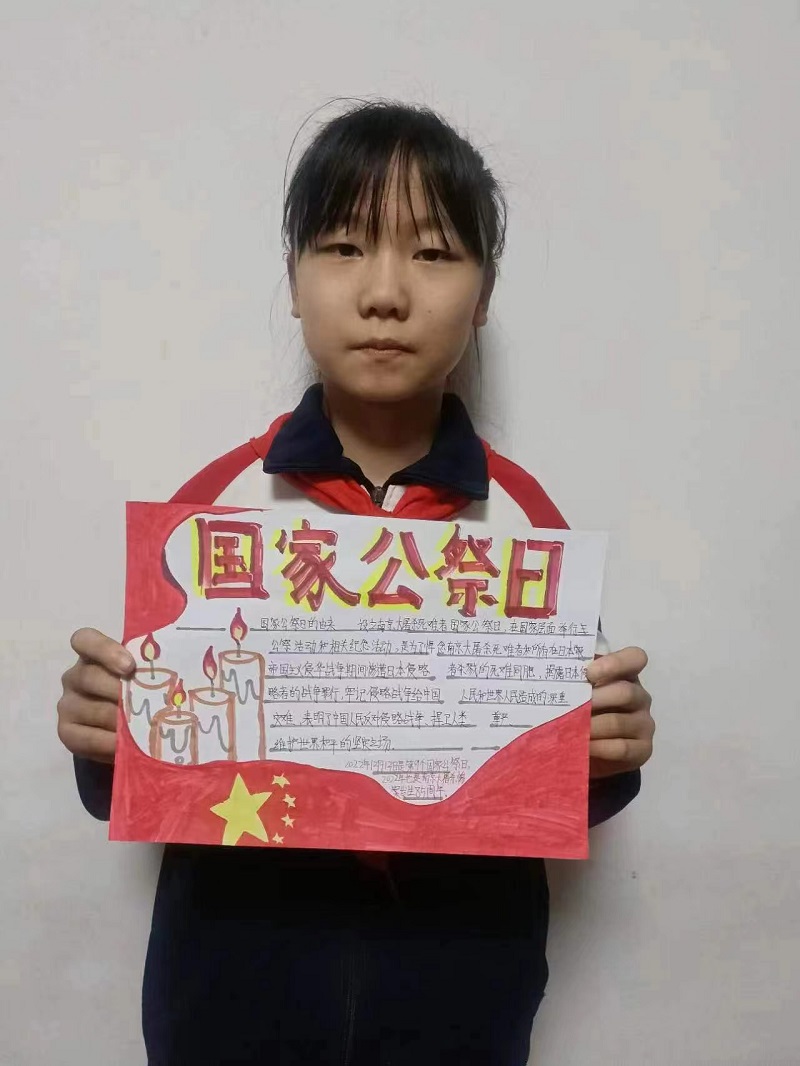 国家公祭日
国家公祭日的由来 设立南京大屠杀死难者国家公祭日,在国家层面举行
公祭活动和相关纪念活动,是为了悼念南京大屠杀死难者和所有在日本
帝国主义侵华战争期间惨遭日本侵略 者杀戮的死难同胞,揭露日本侵
略者的战争罪行,牢记侵略战争给中国 人民和世界人民造成的深重
灾难,表明了中国人民反对侵略战争、捍卫人类
维护世界和平的坚定立场。
2022年12月13日是第9个国家公祭日,
2022年也是南京大屠杀
85周年。